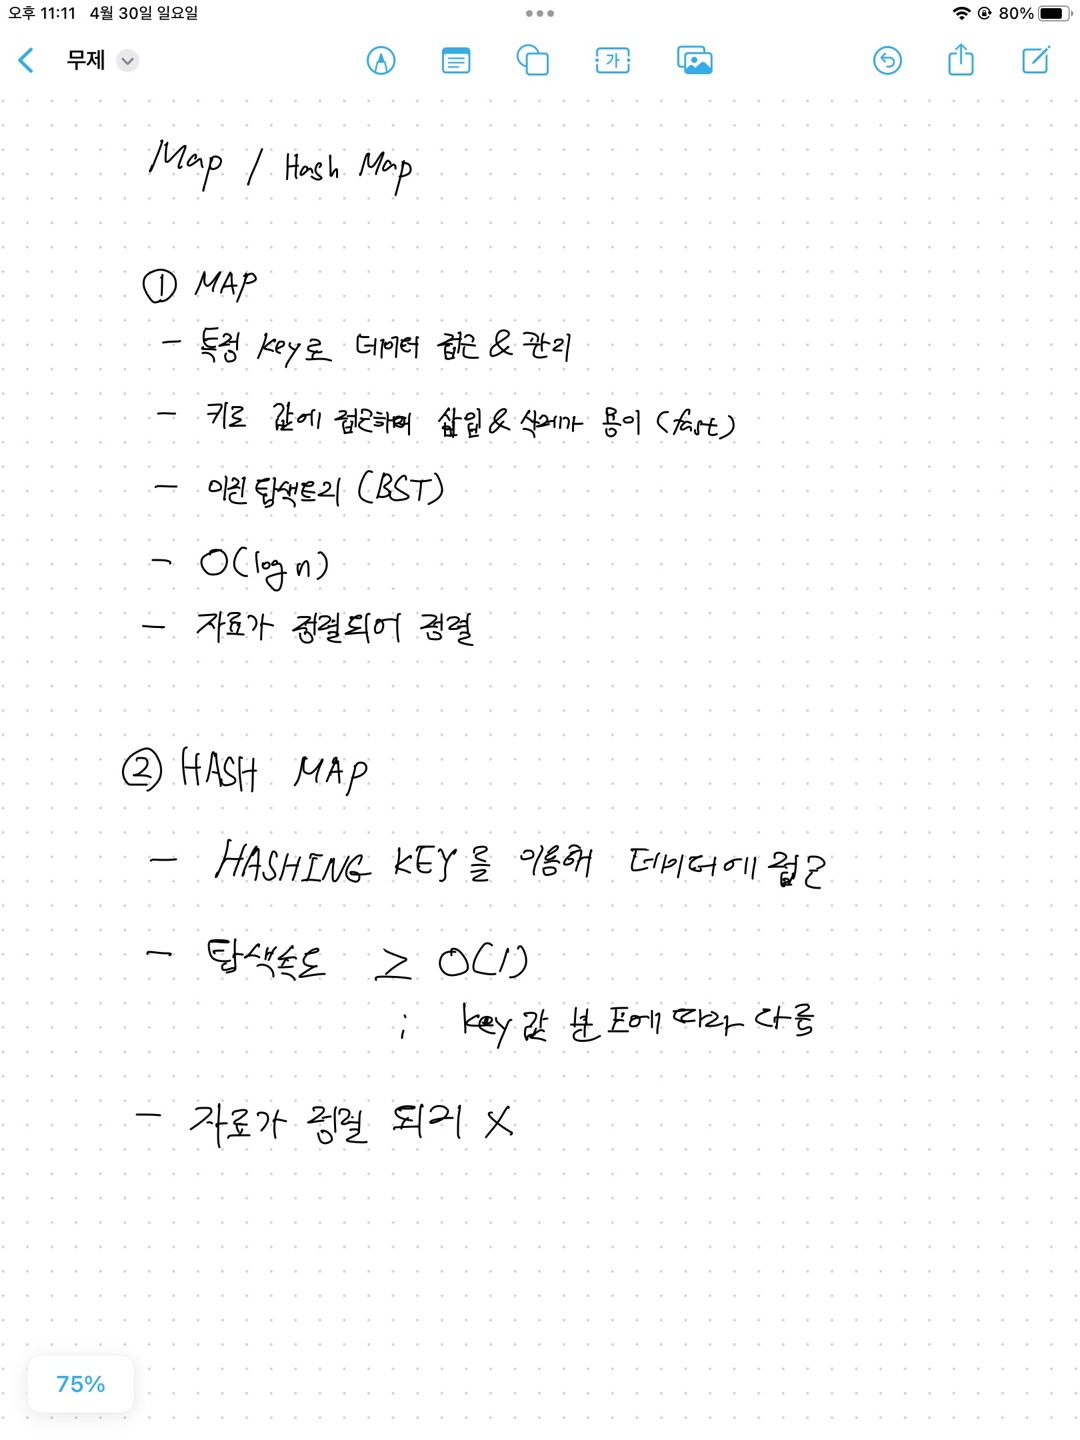 오후 11:11 4월 30일 일요일
80%
무제
가
Map / Hash Map
① MAP
- 특정 key로 데이터 접근 & 관리
- 키로 값에 접근하며 삽입 & 삭제가 용이 (fast)
- 이진탐색트리 (BST)
- O(log n)
- 자료가 정렬되어 정렬
② HASH MAP
- HASHING KEY를 이용해 데이터에 접근
- 탐색속도 ≥ O(1)
; key값 분포에 따라 다름
- 자료가 정렬 되지 X
75%